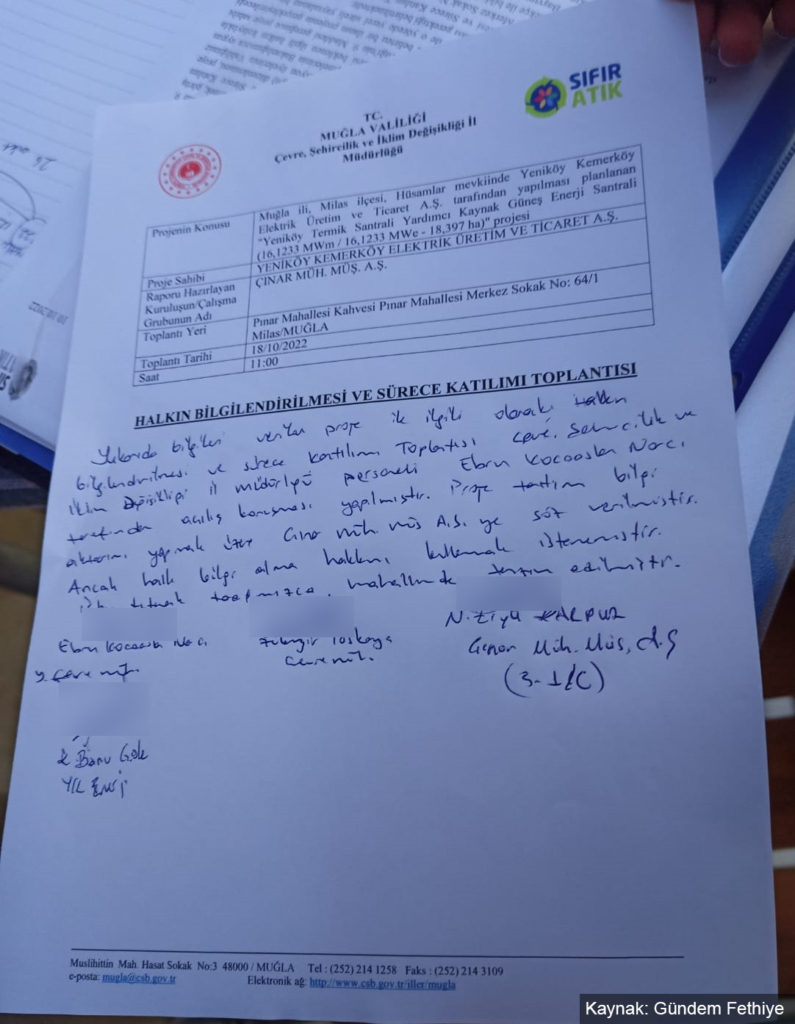 SIFIR
ATIK
T.C.
MUĞLA VALİLİĞİ
Çevre, Şehircilik ve İklim Değişikliği İl
Müdürlüğü
Projenin Konusu
Muğla ili, Milas ilçesi, Hüsamlar mevkiinde Yeniköy Kemerköy
Elektrik Üretim ve Ticaret A.Ş. tarafından yapılması planlanan
"Yeniköy Termik Santrali Yardımcı Kaynak Güneş Enerji Santrali
(16,1233 MWm / 16,1233 MWe - 18,397 ha)" projesi
Proje Sahibi
YENİKÖY KEMERKÖY ELEKTRİK ÜRETİM VE TİCARET A.Ş.
Raporu Hazırlayan
Kuruluşun/Çalışma
Grubunun Adı
ÇINAR MÜH. MÜŞ. A.Ş.
Toplantı Yeri
Pınar Mahallesi Kahvesi Pınar Mahallesi Merkez Sokak No: 64/1
Milas/MUĞLA
Toplantı Tarihi
18/10/2022
Saat
11:00
HALKIN BİLGİLENDİRİLMESİ VE SÜRECE KATILIMI TOPLANTISI
Yukarıda bilgileri verilen proje ile ilgili olarak halkın
bilgilendirilmesi ve sürece katılımı Toplantısı Çevre, Şehircilik ve
İklim Değişikliği il müdürlüğü personeli Ebru Kocaaslan
tarafından açılış konuşması yapılmıştır. Proje tanıtım bilgi
aktarımı yapmak üzere Çınar müh müş A.Ş. ye söz verilmiştir.
Ancak halk bilgi alma hakkını kullanmak istememiştir.
tutanak mahallinde tanzim edilmiştir.
Ebru Kocaaslan
Çevre müh.
N. Ziya KALPUZ
Çınar Müh. Müş. A.Ş
Y. Çevre müh.
Banu Gök
YK Enerji
Muslihittin Mah. Hasat Sokak No:3 48000 / MUĞLA Tel : (252) 214 1258 Faks : (252) 214 3109
e-posta: mugla@csb.gov.tr Elektronik ağ: http://www.csb.gov.tr/iller/mugla
Kaynak: Gündem Fethiye